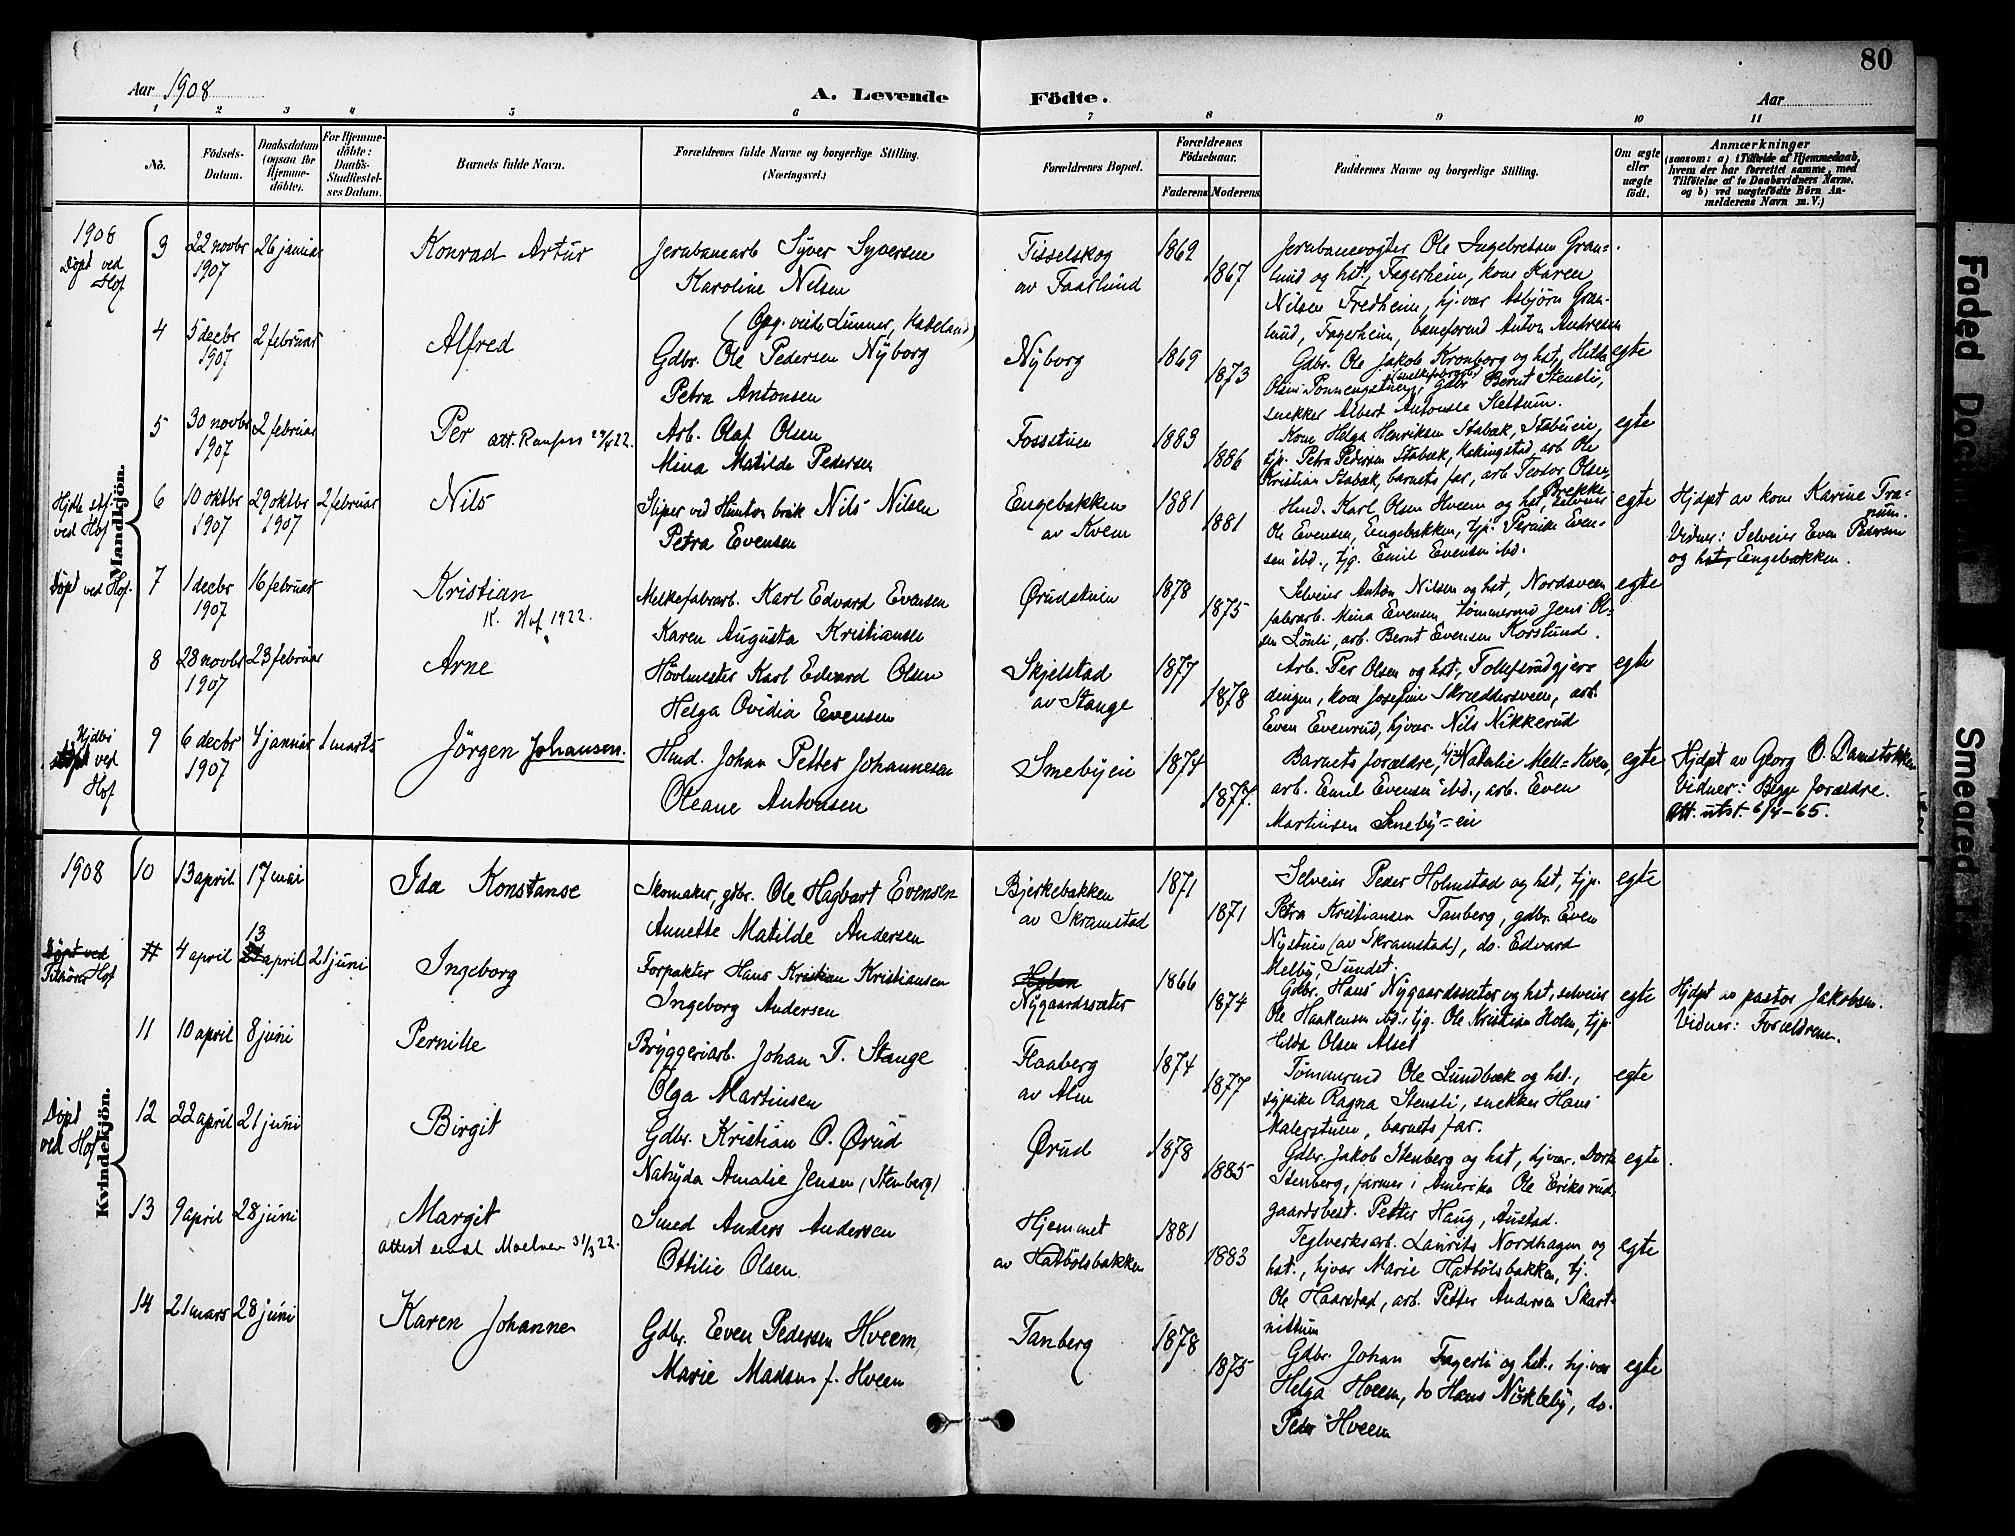 80
Aar 1908
A. Levende Födte.
Aar
1 2 3 4 5 6 7 8 9 10 11
No.
Födsels-Datum.
Daabsdatum (ogsaa for Hjemmedöbte).
For Hjemmedöbte: Daabs-Stadfæstelses Datum.
Barnets fulde Navn.
Forældrenes fulde Navne og borgerlige Stilling. (Næringsvei.)
Forældrenes Bopæl.
Forældrenes Födselsaar.
Faderens Moderens
Faddernes Navne og borgerlige Stilling.
Om ægte eller uægte födt.
Anmærkninger
(saasom: a) i Tilfælde af Hjemmedaab, hvem der har forrettet samme, med Tilföielse af to Daabsvidners Navne, og b) ved uægtefödte Börn Anmelderens Navn m. V.)
Mandkjön.
1908
Døpt ved Hof
3 22 novbr 1907 26 januar
Konrad Artur
Jernbanearb Syver Syversen
Karoline Nilsen
Tisselskog
av Faarlund
1869 1867
Jernbanevogter Ole Ingebretsen Gran-
lund og hst., Fagerheim, kone Karen
Nilsen Fredheim, hj.var Asbjørn Gran-
lund, Fagerheim, baneformd Anton Andresen
4 5 decbr 1907 2 februar
Alfred
Gdbr. Ole Pedersen Nyborg
Petra Antonsen
Nyborg
1869 1873
Gdbr. Ole Jakob Kronborg og hst, Hilda
gdbr Bernt Stensli,
snekker Albert Antonsen Slettum.
egte
5 30 novbr 1907 2 februar
Per
Arb. Olaf Olsen
Mina Matilde Pedersen
Fossstuen
1883 1886
Kone Helga Henriksen Stabæk, Stabueie,
tjp. Petra Pedersen Stabæk, arb Ole
Kristian Stabæk, barnets far, arb Teodor Olsen
Brekke
egte
ved Hof
6 10 oktbr 1907 29 oktbr 1907 2 februar
Nils
Sliper ved Hunton bruk Nils Nilsen
Petra Evensen
Engebakken
av Kvem
1881 1881
Hmd. Karl Olsen Hveem og hst, selveier
Ole Evensen, Engebakken, tjp. Pernike Even-
sen ibd., tjg. Emil Evensen ibd.
egte
Hjdpt av kone Karine Tra-
num.
Vidner: Selveier Even Pedersen
og hst, Engebakken.
Døpt ved Hof.
7 1 decbr 1907 16 februar
Kristian
K. Hof 1922.
Melkefabrarb. Karl Edvard Evensen
Karen Augusta Kristiansen
Ørudstuen
1878 1875
Selveier Anton Nilsen og hst, Nordsveen
fabrarb. Mina Evensen, tømmermd Jens Ol-
sen Lønli, arb. Bernt Evensen Korslund.
egte
8 28 novbr 1907 23 februar
Arne
Høvlmester Karl Edvard Olsen
Helga Ovidia Evensen
Skjelstad
av Stange
1877 1878
Arb. Per Olsen og hst, Tolufsrudgjer-
dingen, kone Josefine Skræddersveen, arb.
Even Evenrud, hjvar. Nils Nikkerud
egte
ved Hof
9 6 decbr 1907 4 januar 1 marts
Jörgen Johansen.
Hmd. Johan Petter Johannesen
Oleane Antonsen
Smebyeie
1874 1877.
Barnets forældre, tjp. Natalie Mell=Kven,
arb. Emil Evensen ibd., arb. Even
Martinsen Smeby=eie
egte
Hjdpt av Georg O. Damstokken
Vidner: Begge forældre.
Att. utst. 6/4-65.
Kvindekjön.
1908
10 13 april 17 mai
Ida Konstanse
Skomaker, gdbr. Ole Hagbart Evensen
Annette Matilde Andersen
Bjerkebakken
av Skramstad
1871 1871
Selveier Peder Holmstad og hst, tjp.
Petra Kristiansen Tanberg, gdbr. Even
Nystuen (av Skramstad), do. Edvard
Melby, Sundet.
egte
Døpt ved
Hof
# 4 april 13 april 21 juni
Ingeborg
Forpakter Hans Kristian Kristiansen
Ingeborg Andersen
Nygaardssæter
1866 1874
Gdbr. Hans Nygaardssæter og hst, selveier
Ole Haakensen ibd., tjg. Ole Kristian Holen, tjp.
Hilda Olsen Alset
egte
Hjdpt av pastor Jakobsen.
Vidner: Forældrene.
11 10 april 8 juni
Pernille
Bryggeriarb. Johan T. Stange
Olga Martinsen
Flaaberg
av Alm
1874 1877
Tømmermd Ole Lundbæk og hst.,
sypike Ragna Stensli, snekker Hans
Malerstuen, barnets far.
egte
Døpt
ved Hof
12 22 april 21 juni
Birgit
Gdbr. Kristian O. Ørud
Natryda Amalie Jensen (Stenberg)
Ørud
1878 1885
Gdbr. Jakob Stenberg og hst, hjvær. Dorte
Stenberg, farmer i Amerika Ole Eriksrud,
gaardsbest. Petter Haug, Austad.
egte
13 9 april 28 juni
Margit
attest send Moelven 31/3 22.
Smed Anders Andersen
Ottilie Olsen
Hjemmet
av Hatbølsbakken
1881 1883
Teglverksarb. Laurits Nordhagen og
hst., hjvar Marie Hatbølsbakken, tj.
Ole Haarstad, arb. Petter Andersen Skart-
nittum
egte
14 21 mars 28 juni
Karen Johanne
Gdbr. Even Pedersen Hveem
Marie Madsen f. Hveem
Tanberg
1878 1875
Gdbr. Johan Fagerli og hst., hj.vær
Helga Hveem, do Hans Nickleby, do.
Peder Hveem
egte
Faded Doc
Smeared